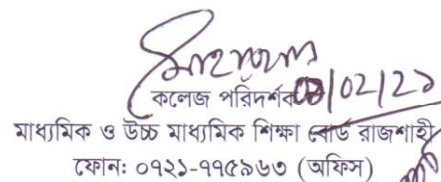 কলেজ পরিদর্শক
মাধ্যমিক ও উচ্চ মাধ্যমিক শিক্ষা বোর্ড রাজশাহী
ফোন: ০৭২১-৭৭৫৯৬৩ (অফিস)